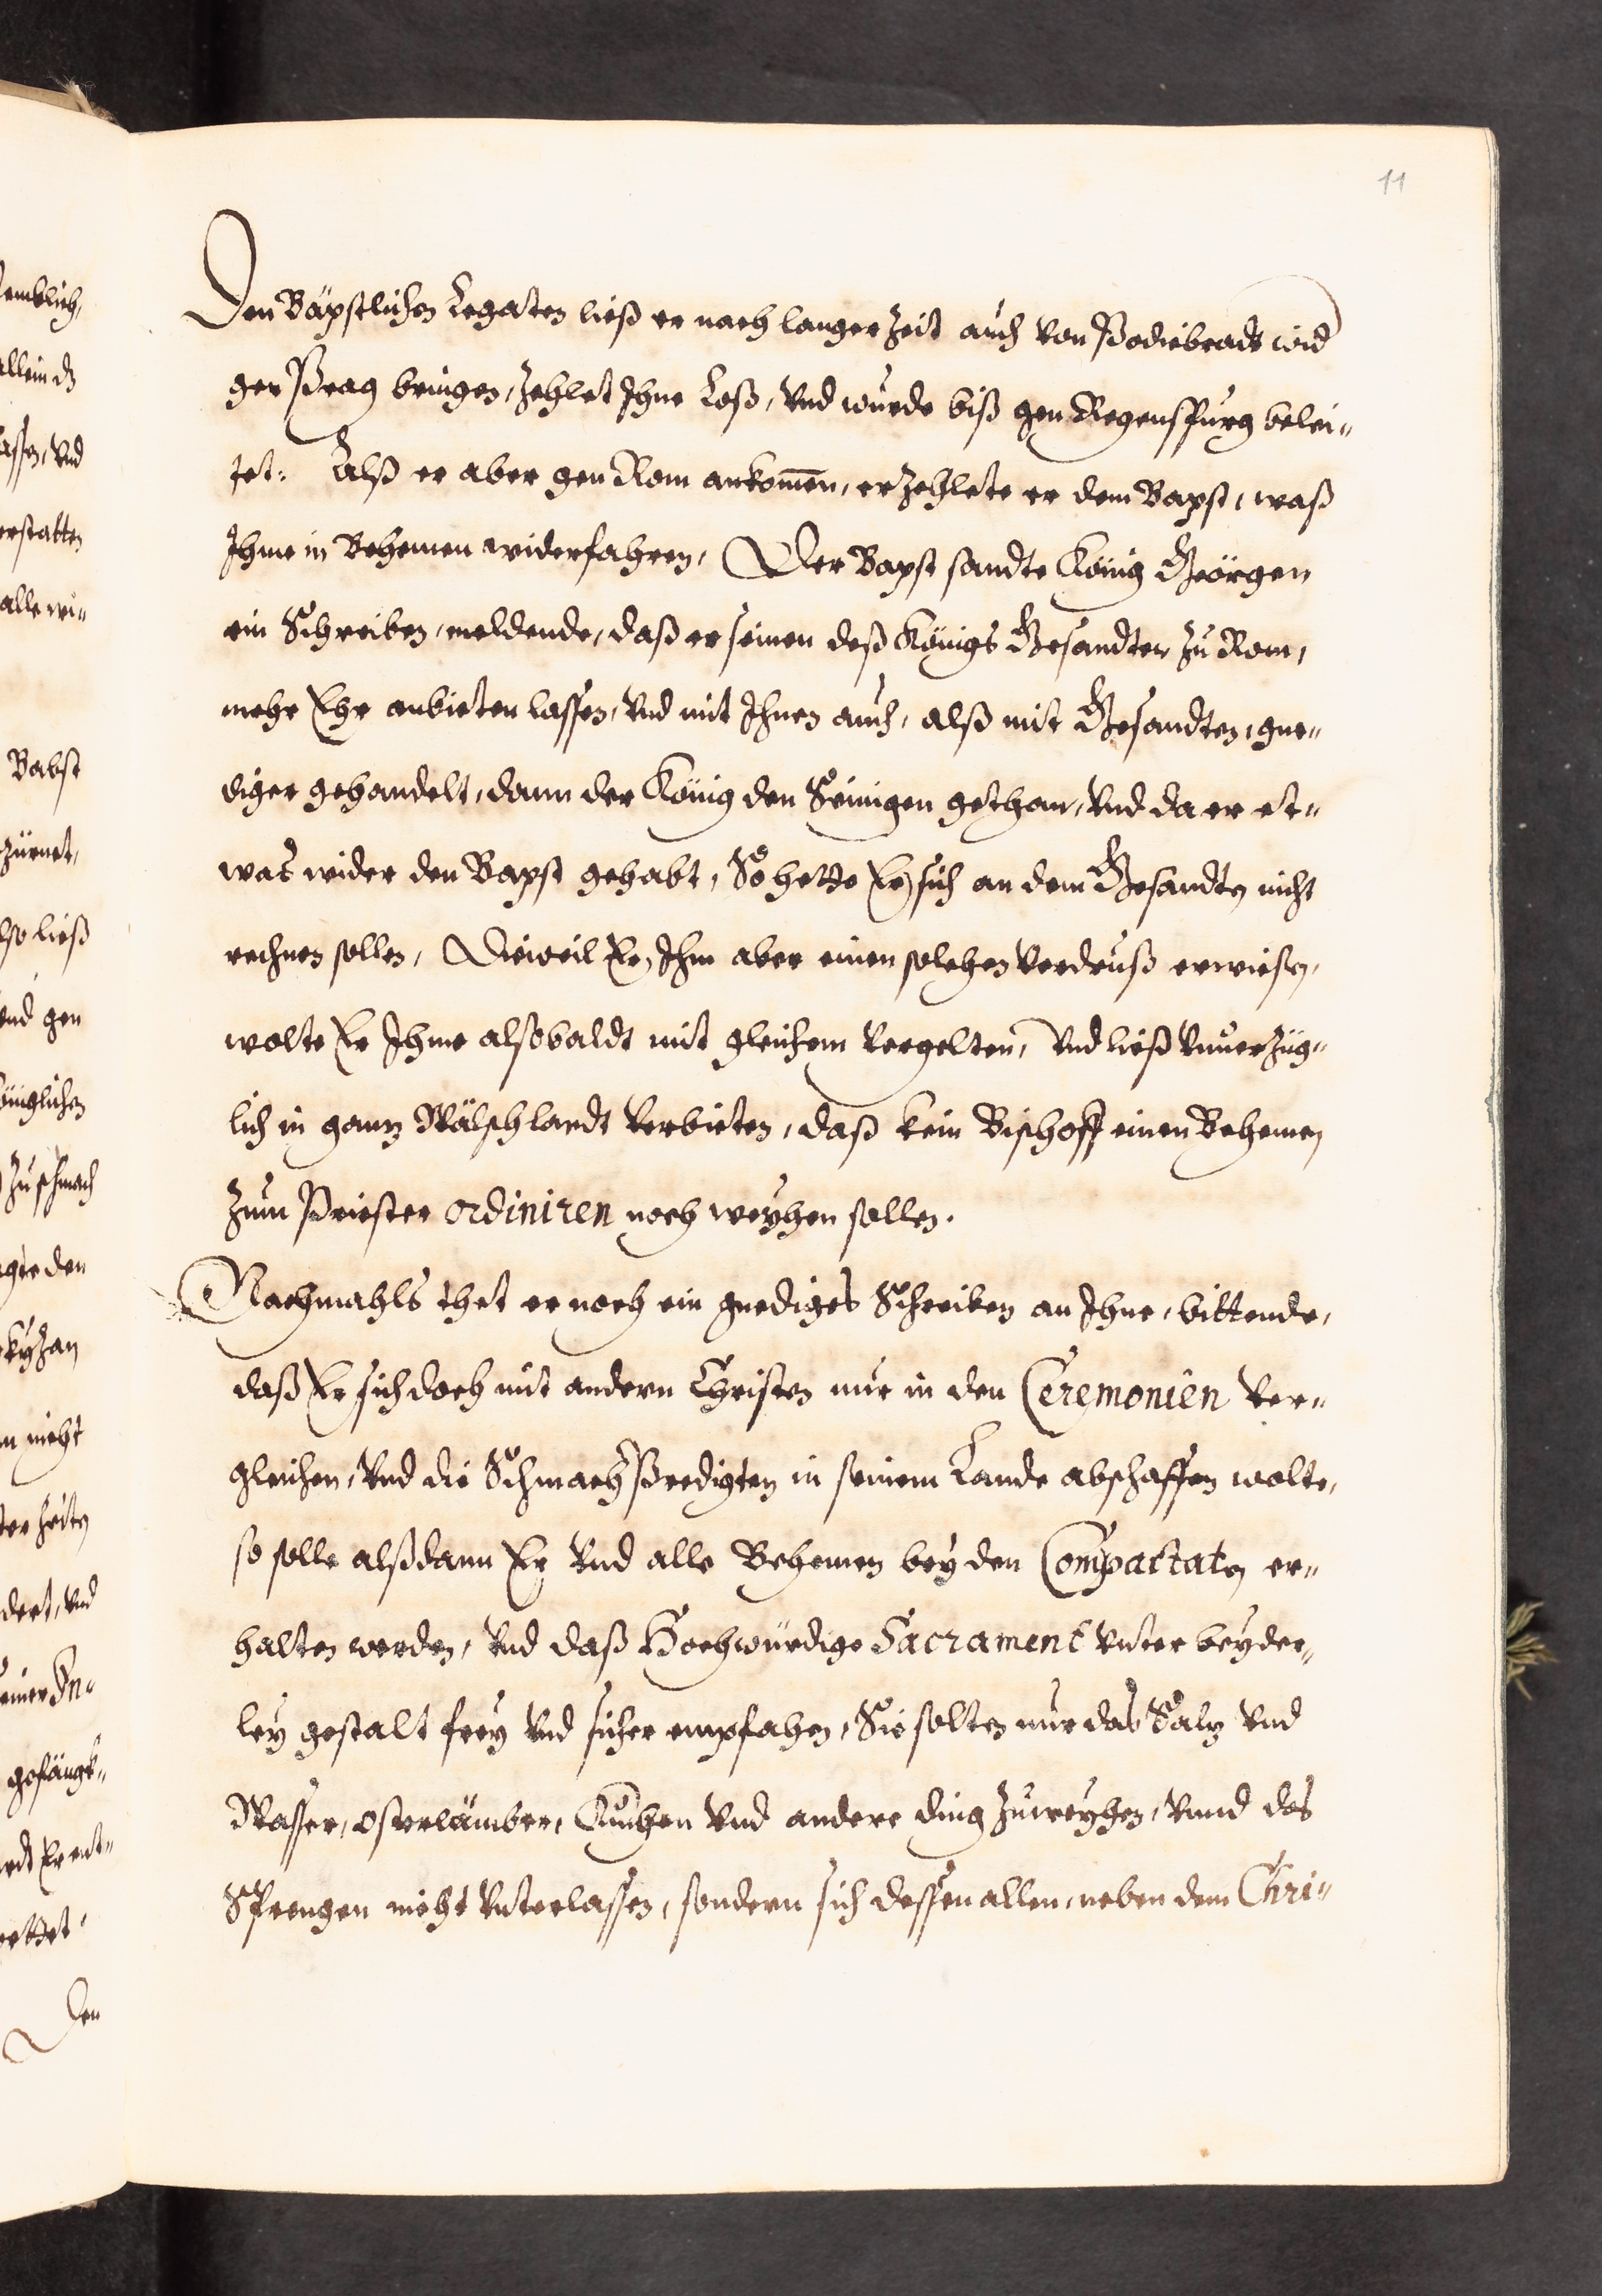 11
Den Bäpstlichen Legaten ließ er nach langer Zeit auch von Podiebradt wid
gen Prag bringen, Zehlet Ihne Loß, Vnd wurde biß gen Regenspurg belei-
tet: Alß er aber gen Rom ankom̄en, erZehlete er dem Bapst, waß
Ihme in Behemen widerfahren, Der Bapst sandte König Geörgen
ein Schreiben, meldende, daß er seinen deß Königs Gesandten Zu Rom,
mehr Ehr anbieten lassen, Vnd mit Ihnen auch, alß mit Gesandten, gne-
diger gehandelt, dann der König den Seinigen gethan, Vnd da er et-
was wider den Bapst gehabt, So hette Er sich an dem Gesandten nicht
rechnen sollen, Dieweil Er Ihm aber einen solchen Verdruß erwiesen,
wolte Er Ihme alsobaldt mit gleichem Vergelten, Vnd ließ VnuerZüg-
lich in gantz Wälschlandt Verbieten, daß kein Bischoff einen Behemen
Zum Priester ordiniren noch weyhen sollen.
Nachmahls thet er noch ein gnediges Schreiben an Ihne, bittende,
daß Er sich doch mit andern Christen nur in den Ceremonien Ver-
gleichen, Vnd die Schmach Predigten in seinem Lande abschaffen wolte,
so solle alßdann Er Vnd alle Behemen bey den Compactaten er-
halten werden, Vnd daß Hochwürdige Sacrament Vnter beyder-
ley gestalt frey Vnd sicher empfahen, Sie solten nur das Saltz Vnd
Wasser, Osterlämber, Kuchen Vnd andere ding Zuweyhen, Vnnd das
Sprengen nicht Vnterlassen, sondern sich dessen allen, neben dem Chri-